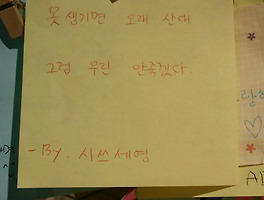 못 생기면 오래 산대
그럼 우린 안죽겠다.
-By. 시쓰세영
랑해